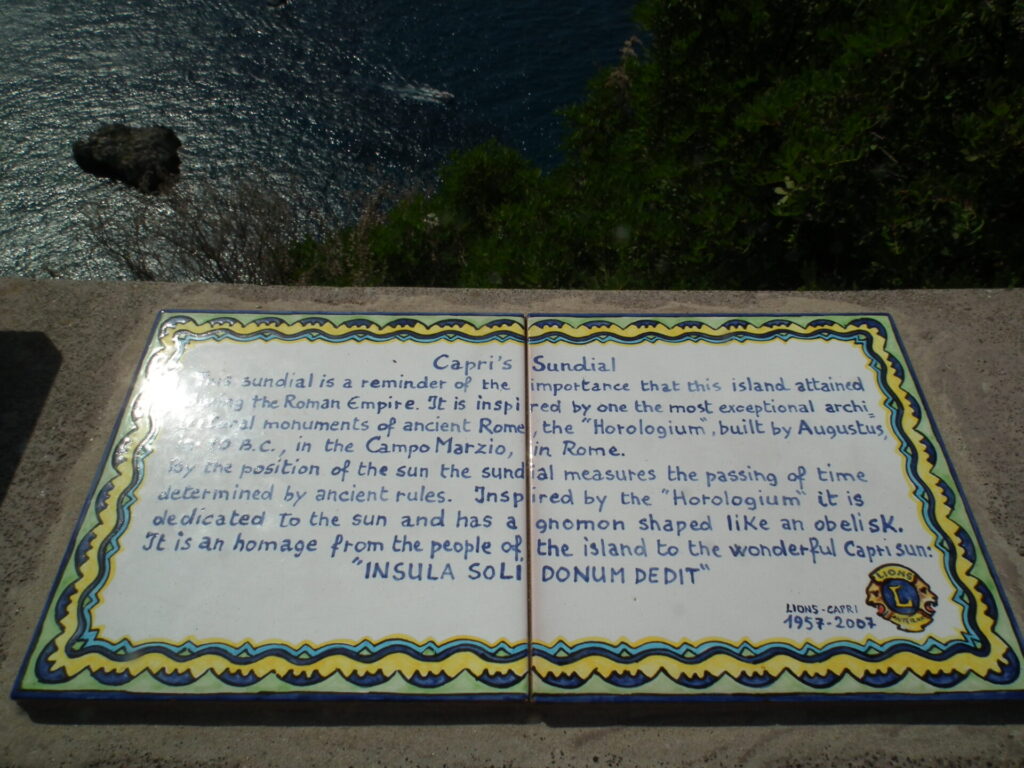 Capri's Sundial
This sundial is a reminder of the importance that this island attained
the Roman Empire. It is inspired by one the most exceptional archi_
monuments of ancient Rome, the "Horologium", built by Augustus,
10 B.C., in the Campo Marzio, in Rome.
By the position of the sun the sundial measures the passing of time
determined by ancient rules. Inspired by the "Horologium" it is
dedicated to the sun and has a gnomon shaped like an obelisk.
It is an homage from the people of the island to the wonderful Capri sun:
"INSULA SOLI DONUM DEDIT"
LIONS
L
LIONS - CAPRI
1957-2007